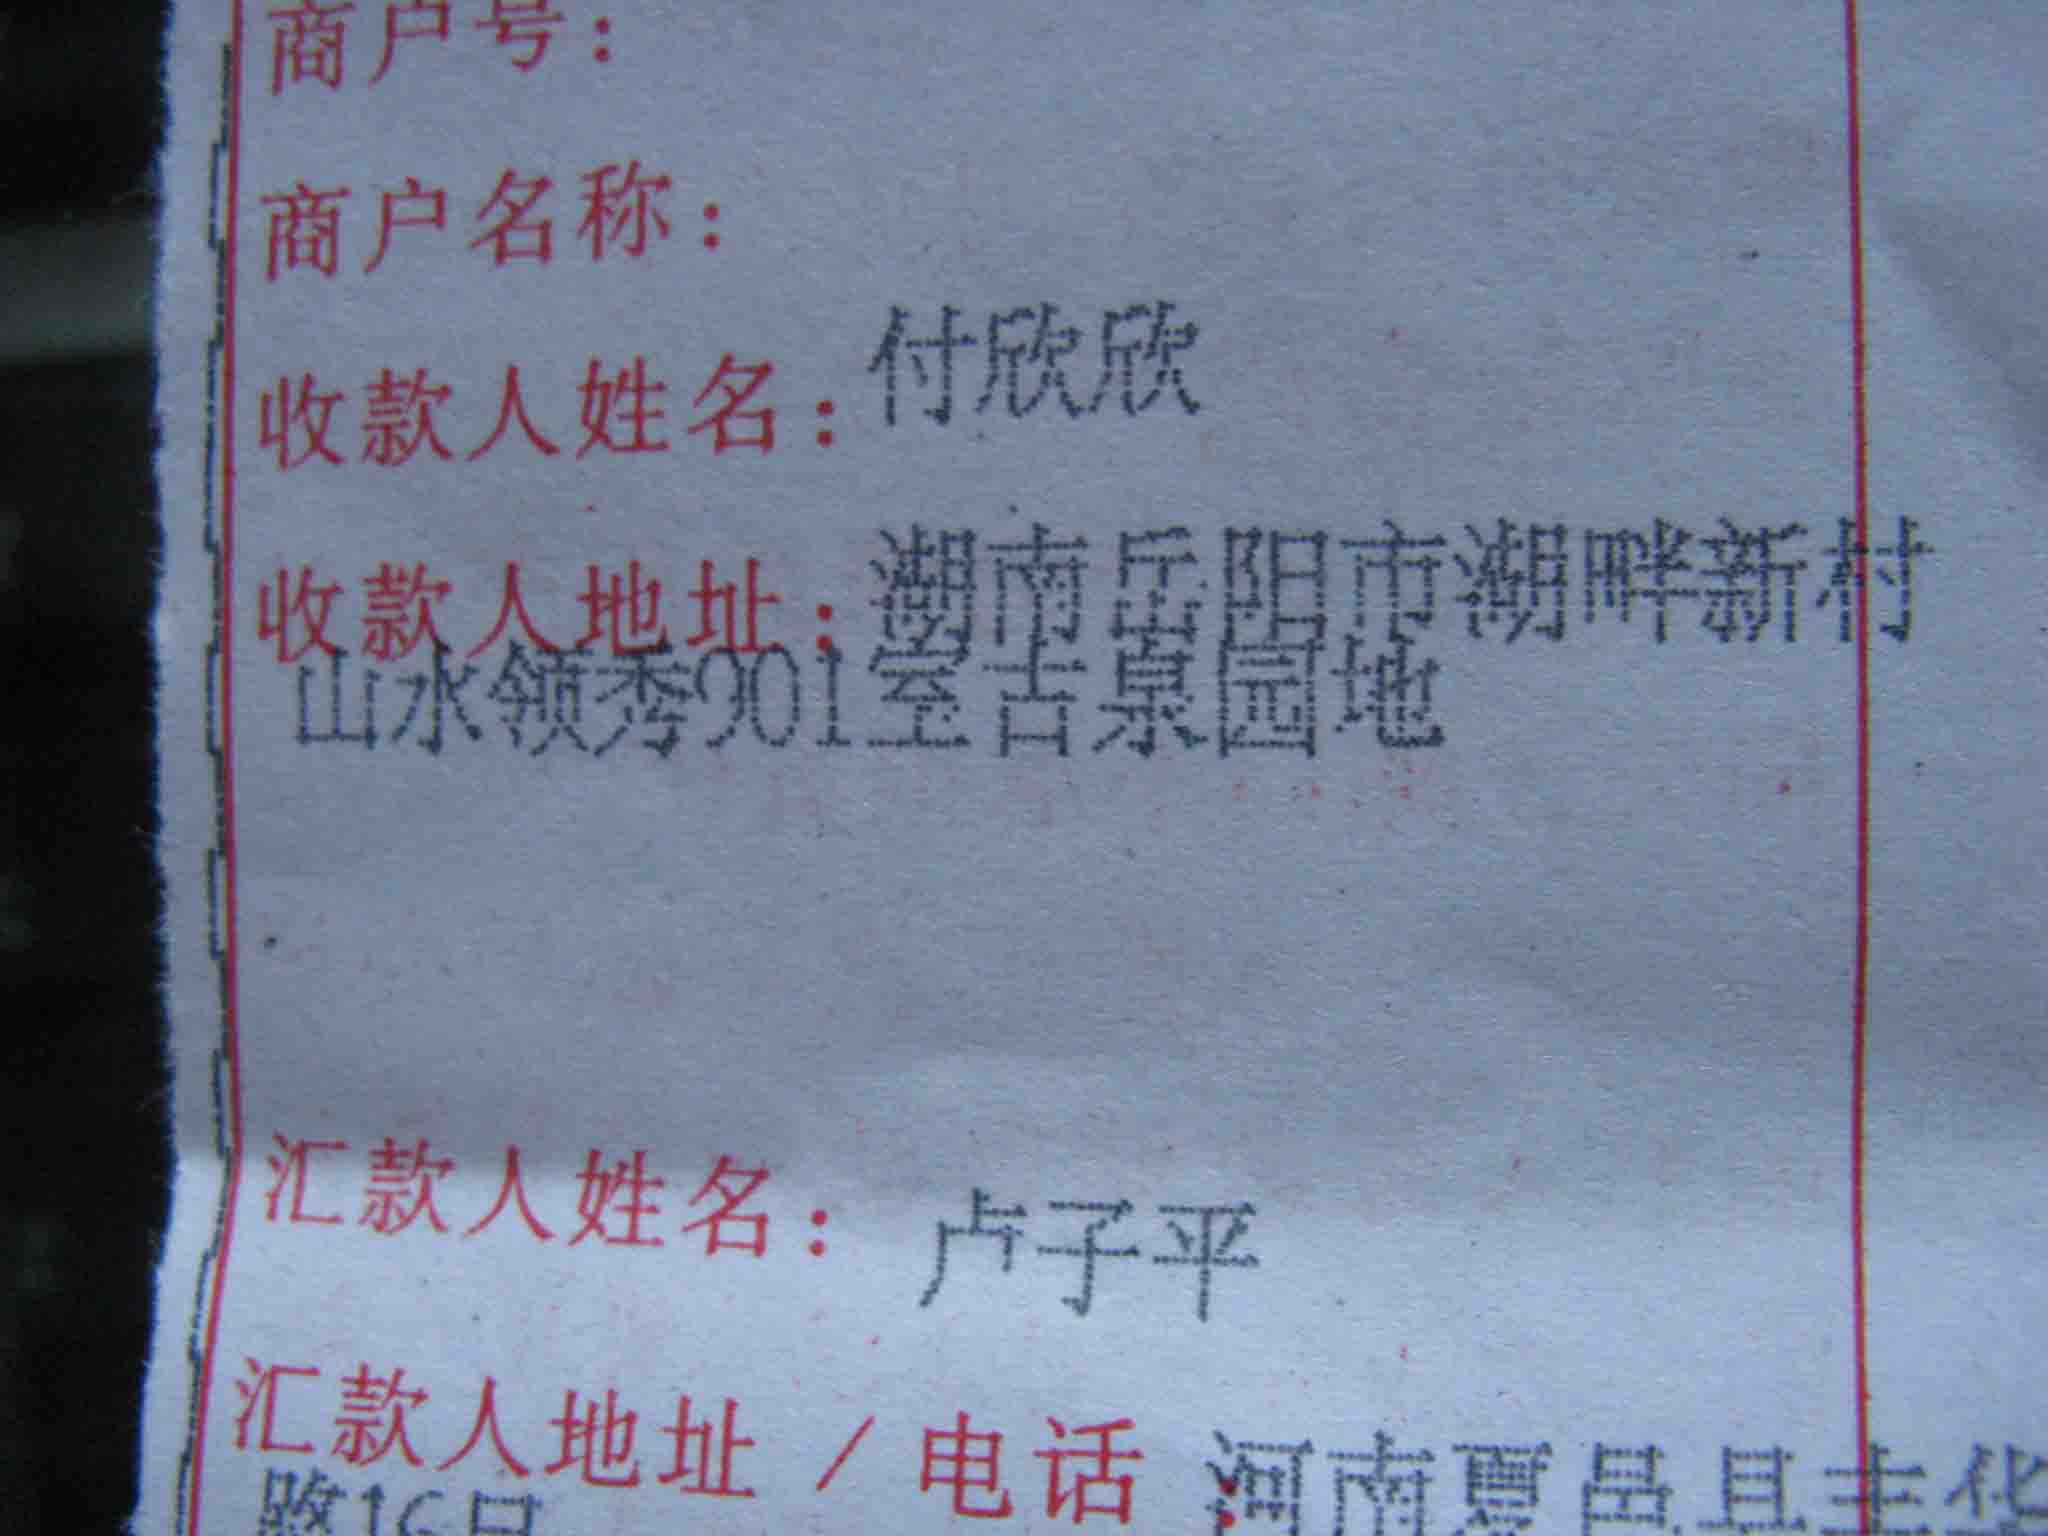 商户号：
商户名称：
收款人姓名：付欣欣
收款人地址：湖南岳阳市湖畔新村
山水领秀901室古原园地
汇款人姓名：卢子平
汇款人地址／电话：河南夏邑县丰华
路16号